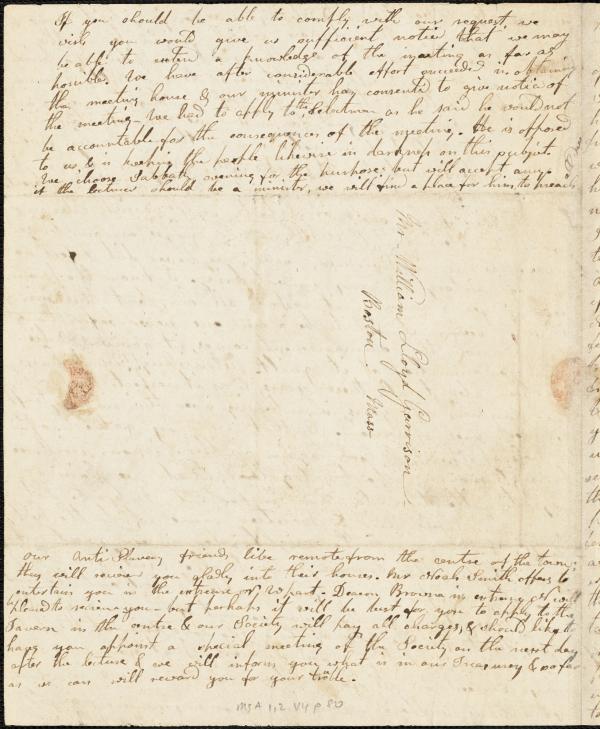 If you should be able to comply with our request, we
wish you would give us sufficient notice that we may
be able to extend a knowledge of the meeting as far as
possible. We have after considerable effort succeeded in obtaining
the meeting house & our minister has consented to give notice of
the meeting – We had to apply to the Selectmen as he said he would not
be accountable for the consequences of the meeting. He is opposed
to us & is keeping the people likewise in darkness on this subject.
We choose Sabbath evening for the purpose; but will accept any.
if the lecturer should be a minister, we will find a place for him to preach
Mr William Lloyd Garrison
Boston
Mass
our Anti Slavery friends live remote from the centre of the town;
they will receive you gladly into their houses. Mr Noah Smith offers to
entertain you in the part. Deacon will
be pleased to receive you – but perhaps it will be best for you to apply to the
Tavern in the centre & our Society will pay all charges, & should like to
have you appoint a special meeting of the Society on the next day
after the lecture & we will inform you what is in our Treasury & so far
as we can will reward you for your trouble.
Ms A 1.2 V4 p 80